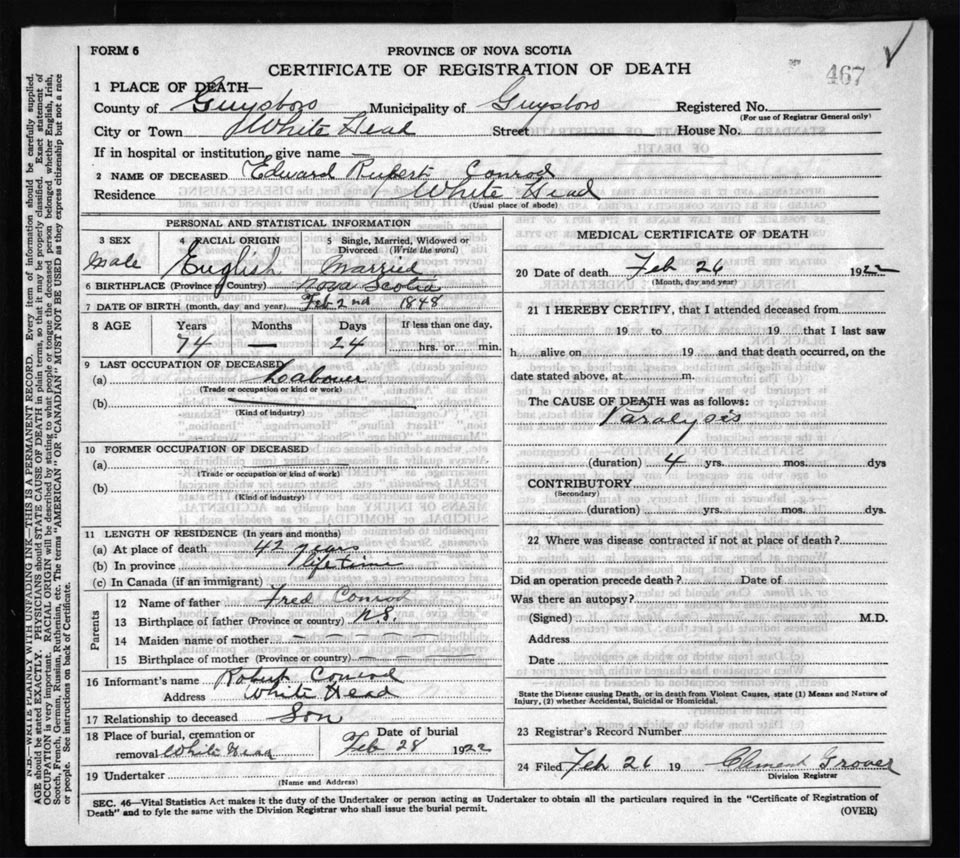 FORM 6
PROVINCE OF NOVA SCOTIA
467
CERTIFICATE OF REGISTRATION OF DEATH
1 PLACE OF DEATH—
County of Guysboro Municipality of Guysboro Registered No.
(For use of Registrar General only)
City or Town White Head Street House No.
If in hospital or institution, give name —
2 NAME OF DECEASED Edward Rupert Conrod
Residence White Head
(Usual place of abode)
PERSONAL AND STATISTICAL INFORMATION
3 SEX 4 RACIAL ORIGIN 5 Single, Married, Widowed or Divorced (Write the word)
Male English Married
6 BIRTHPLACE (Province or Country) Nova Scotia
7 DATE OF BIRTH (month, day and year) Feb 2nd 1848
8 AGE Years Months Days If less than one day,
74 — 24 hrs. or min.
9 LAST OCCUPATION OF DECEASED
(a) Labourer
(Trade or occupation or kind or work)
(b)
(Kind of industry)
10 FORMER OCCUPATION OF DECEASED
(a)
(Trade or occupation or kind of work)
(b)
(Kind of industry)
11 LENGTH OF RESIDENCE (In years and months)
(a) At place of death 42 years
(b) In province lifetime
(c) In Canada (if an immigrant)
Parents
12 Name of father Fred Conrod
13 Birthplace of father (Province or country) N.S.
14 Maiden name of mother — — — —
15 Birthplace of mother (Province or country) — —
16 Informant's name Robert Conrod
Address White Head
17 Relationship to deceased Son
18 Place of burial, cremation or Date of burial
removal White Head Feb 28 1922
19 Undertaker
(Name and Address)
MEDICAL CERTIFICATE OF DEATH
20 Date of death Feb 26 1922
(Month, day and year)
21 I HEREBY CERTIFY, that I attended deceased from
19 to 19 that I last saw
h alive on 19 and that death occurred, on the
date stated above, at m.
The CAUSE OF DEATH was as follows:
Paralysis
(duration) 4 yrs. mos. dys
CONTRIBUTORY
(Secondary)
(duration) yrs. mos. dys.
22 Where was disease contracted if not at place of death?
Did an operation precede death? Date of
Was there an autopsy?
(Signed) M.D.
Address
Date
State the Disease causing Death, or in death from Violent Causes, state (1) Means and Nature of
Injury, (2) whether Accidental, Suicidal or Homicidal.
23 Registrar's Record Number
24 Filed Feb 26 19 Clement Grover
Division Registrar
SEC. 46—Vital Statistics Act makes it the duty of the Undertaker or person acting as Undertaker to obtain all the particulars required in the "Certificate of Registration of
Death" and to fyle the same with the Division Registrar who shall issue the burial permit.
(OVER)
N.B.—WRITE PLAINLY WITH UNFADING INK—THIS IS A PERMANENT RECORD. Every item of information should be carefully supplied.
AGE should be stated EXACTLY. PHYSICIANS should STATE CAUSE OF DEATH in plain terms, so that it may be properly classified. Exact statement of
OCCUPATION is very important. RACIAL ORIGIN will be described by stating to what people or tongue the deceased person belonged whether English, Irish,
Scotch, French, German, Russian, Ruthenian, etc. The terms "AMERICAN" OR "CANADIAN" MUST NOT BE USED as they express citizenship but not a race
or people. See instructions on back of Certificate.